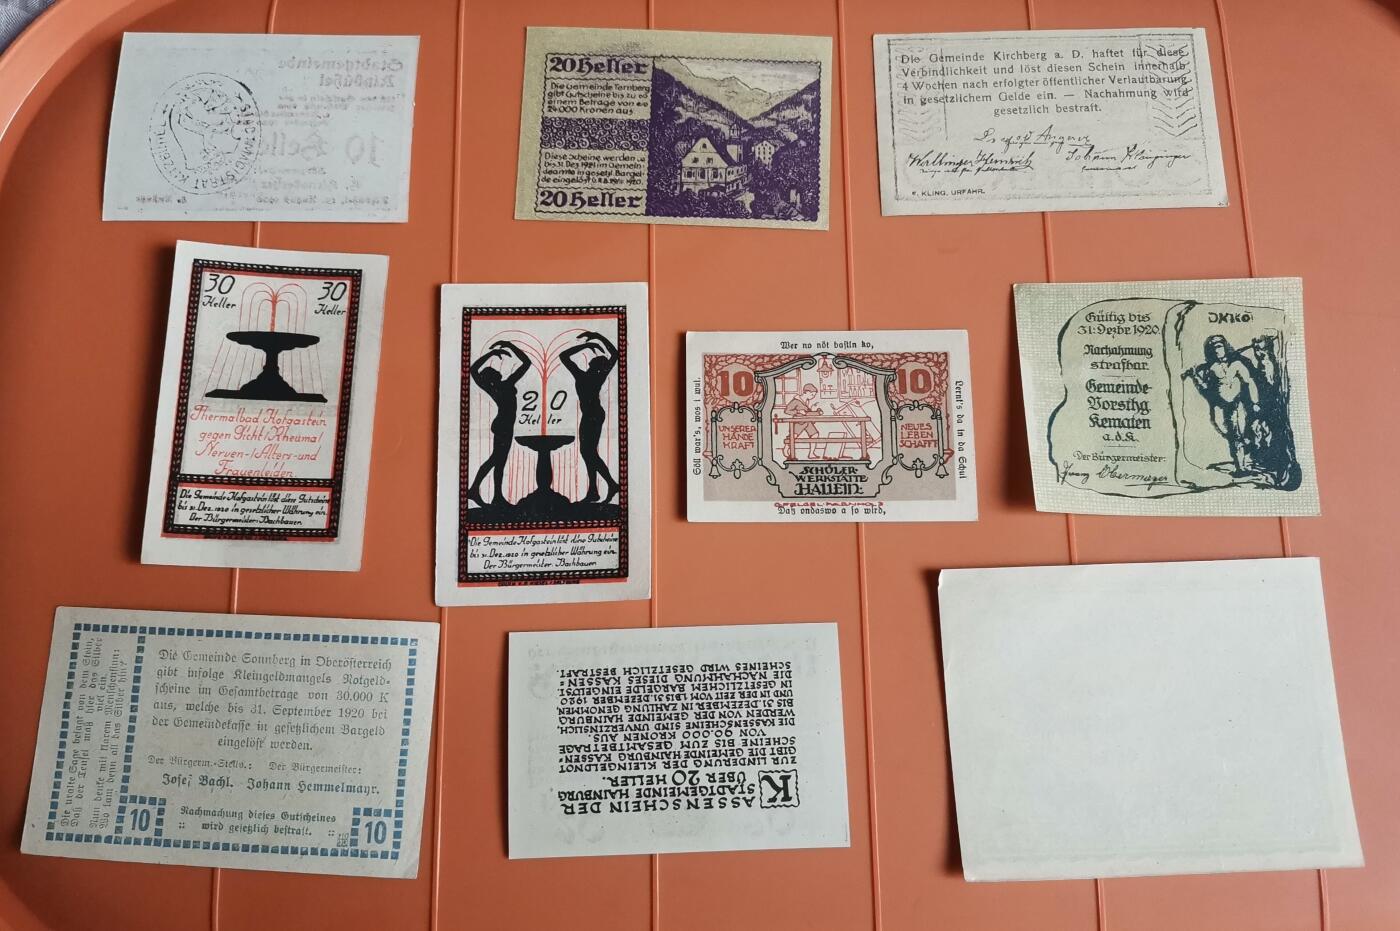 Stadtgemeinde
Kitzbühel
10 Heller
STADTMAGISTRAT KITZBÜHEL
20 Heller
Die Gemeinde Ternberg
gibt Gutscheine bis zu
einem Betrage von
24.000 Kronen aus
Diese Scheine werden
bis 31. Dez. 1920 im Gemein-
deamte in gesetzl. Bargel-
de eingelöst
20 Heller
Die Gemeinde Kirchberg a. D. haftet für diese
Verbindlichkeit und löst diesen Schein innerhalb
4 Wochen nach erfolgter öffentlicher Verlautbarung
in gesetzlichem Gelde ein. — Nachahmung wird
gesetzlich bestraft.
E. KLING, URFAHR.
30 30
Heller Heller
Thermalbad Hofgastein
gegen Gicht/Rheuma/
Nerven-/Alters-und
Frauenleiden.
Die Gemeinde Hofgastein löst diese Gutscheine
bis 31. Dez. 1920 in gesetzlicher Währung ein.
Der Bürgermeister: Bachbauer
20
Heller
Die Gemeinde Hofgastein löst diese Gutscheine
bis 31. Dez. 1920 in gesetzlicher Währung ein.
Der Bürgermeister: Bachbauer
Wer no nöt bastln ko,
Söll war's, wos i wul.
Lernt's da in da Schul
10 10
UNSERER
HÄNDE
KRAFT
NEUES
LEBEN
SCHAFFT
SCHÜLER-
WERKSTÄTTE
HALLEIN:
Daß ondaswo a so wird,
Gültig bis
31. Dezbr 1920.
Nachahmung
strafbar.
Gemeinde-
Vorsthg
Kematen
a.d.K.
Der Bürgermeister:
Franz Obermayer
Die uralte Sage besagt von dem Stein,
Daß der Teufel maß hier das Silber
viel ein.
Nun denke mit klarem Menschensinn:
Wo kam denn all das Silber hin?
Die Gemeinde Sonnberg in Oberösterreich
gibt infolge Kleingeldmangels Notgeld-
scheine im Gesamtbetrage von 30.000 K
aus, welche bis 31. September 1920 bei
der Gemeindekasse in gesetzlichem Bargeld
eingelöst werden.
Der Bürgerm.-Stellv.: Der Bürgermeister:
Josef Bachl. Johann Hemmelmayr.
Nachmachung dieses Gutscheines
:: wird gesetzlich bestraft. ::
10 10
KASSENSCHEIN DER
STADTGEMEINDE HAINBURG
ÜBER 20 HELLER.
ZUR LINDERUNG DER KLEINGELDNOT
GIBT DIE GEMEINDE HAINBURG KASSEN=
SCHEINE BIS ZUM GESAMTBETRAGE
VON 90.000 KRONEN AUS.
DIE KASSENSCHEINE SIND UNVERZINSLICH,
WERDEN VON DER GEMEINDE HAINBURG
BIS 31. DEZEMBER IN ZAHLUNG GENOMMEN,
UND IN DER ZEIT VOM 1. BIS 31. DEZEMBER 1920
IN GESETZLICHEM BARGELDE EINGELÖST.
DIE NACHAHMUNG DIESES KASSEN=
SCHEINES WIRD GESETZLICH BESTRAFT.